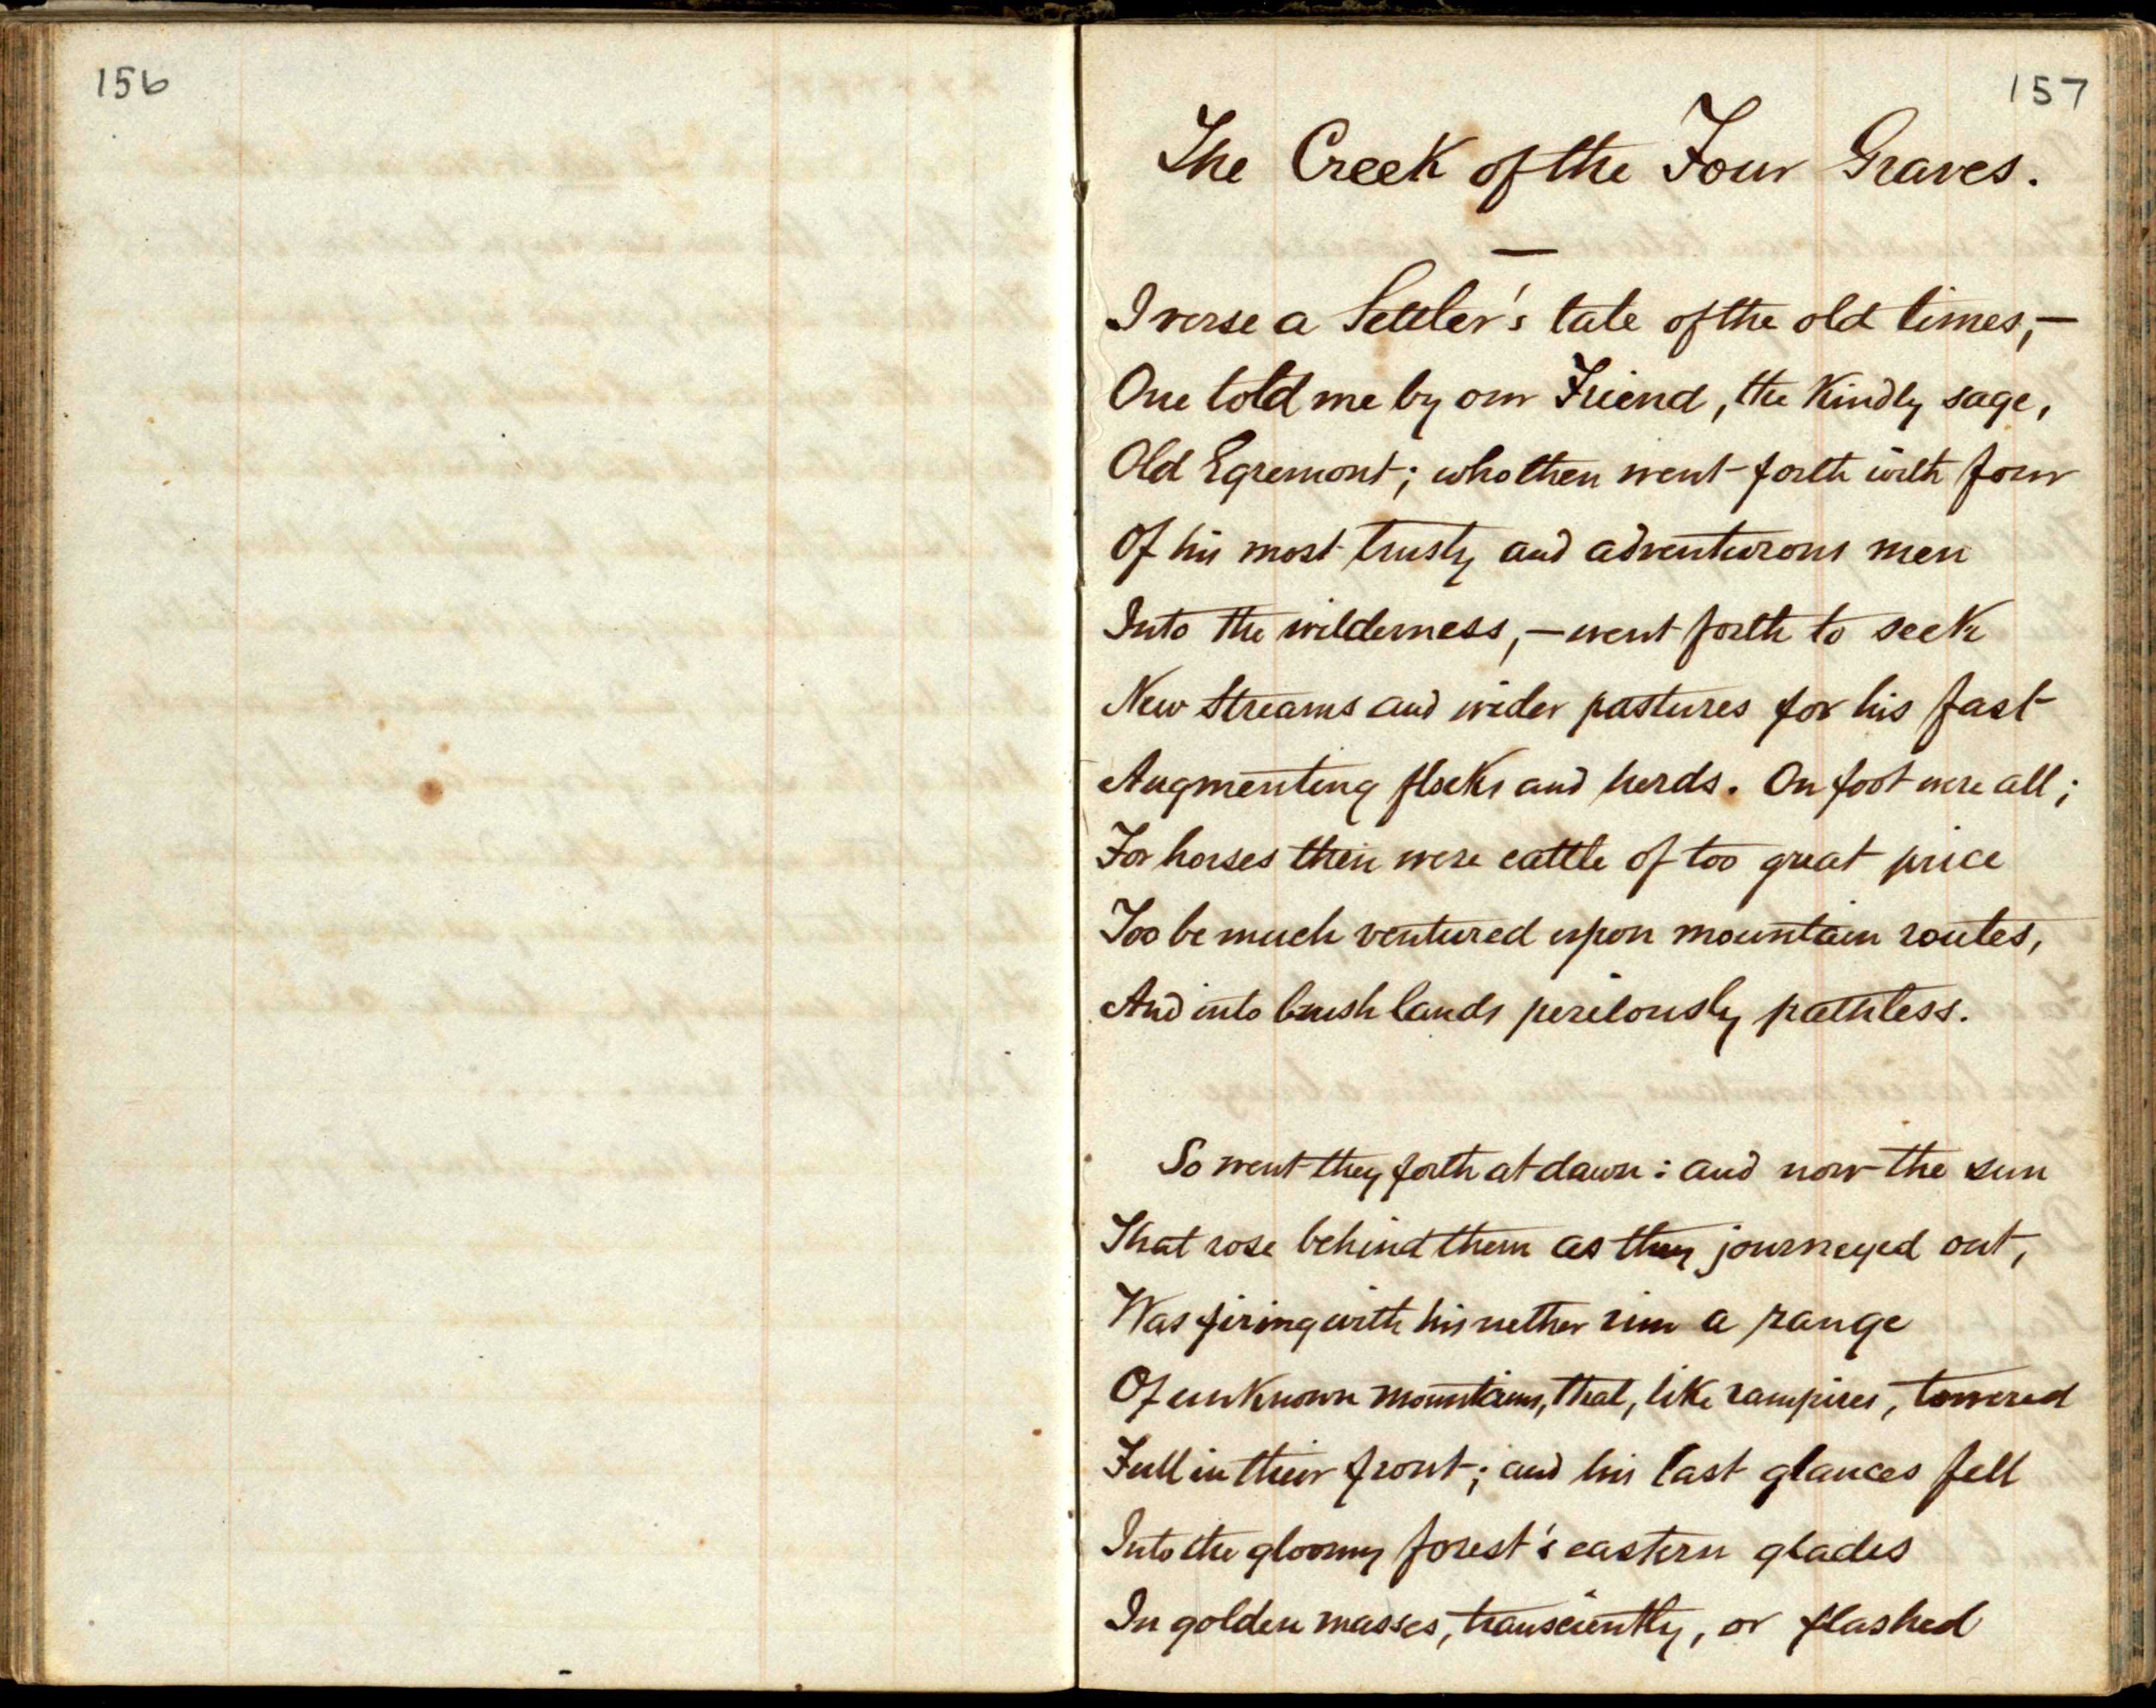 156
157
The Creek of the Four Graves.
—
I verse a Settler's tale of the old times,—
One told me by our Friend, the Kindly sage,
Old Egremont; who then went forth with four
Of his most trusty and adventurous men
Into the wilderness,—went forth to seek
New Streams and wider pastures for his fast
Augmenting flocks and herds. On foot were all;
For horses then were cattle of too great price
Too be much ventured upon mountain routes,
And into brush lands perilously pathless.
So went they forth at dawn: and now the sun
That rose behind them as they journeyed out,
Was firing with his nether rim a range
Of unknown mountains, that, like rampires, towered
Full in their front; and his last glances fell
Into the gloomy forest's eastern glades
In golden masses, transciently, or flashed